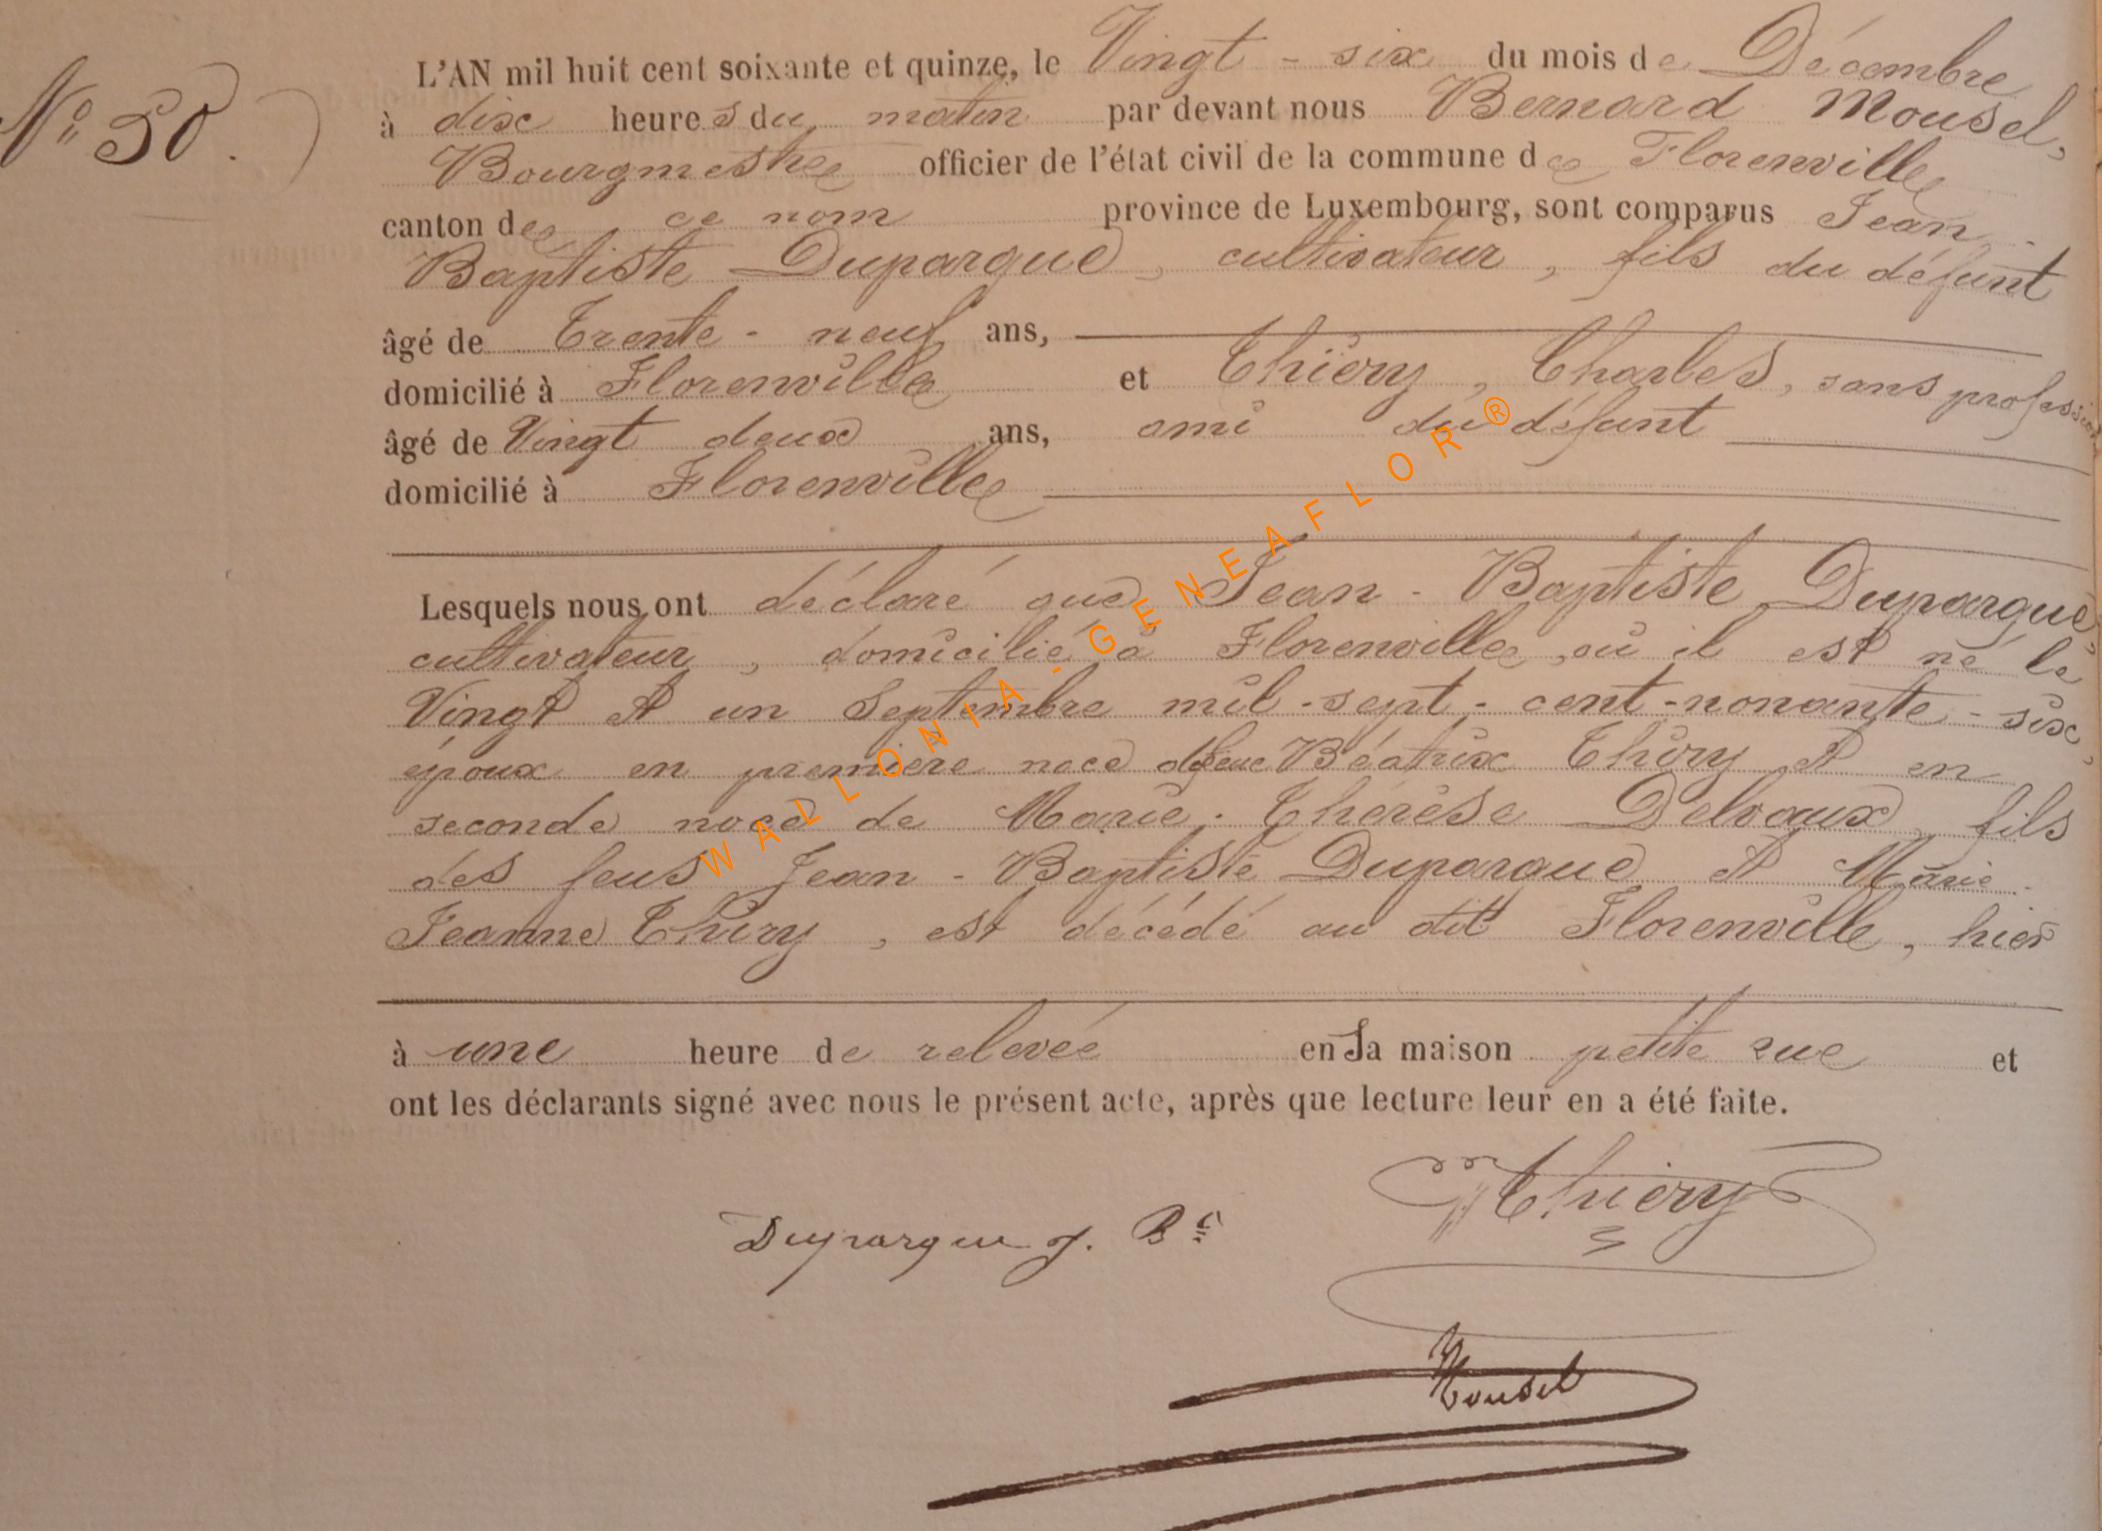 N° 50.
L'AN mil huit cent soixante et quinze, le Vingt - six du mois de Décembre
à dix heures du matin par devant nous Bernard Mousel,
Bourgmestre officier de l'état civil de la commune de Florenville
canton de ce nom province de Luxembourg, sont comparus Jean
Baptiste Duparque, cultivateur, fils du défunt
âgé de Trente - neuf ans,
domicilié à Florenville et Thiéry, Charles, sans profession
âgé de Vingt deux ans, ami du défunt
domicilié à Florenville
Lesquels nous ont déclaré que Jean - Baptiste Duparque,
cultivateur, domicilié à Florenville, où il est né le
Vingt et un Septembre mil - sept - cent - nonante - six,
époux en première noce de feue Béatrix Thiry et en
seconde noce de Marie - Thérèse Delvaux, fils
des feus Jean - Baptiste Duparque et Marie
Jeanne Thiry, est décédé au dit Florenville, hier
à une heure de relevée en sa maison petite rue et
ont les déclarants signé avec nous le présent acte, après que lecture leur en a été faite.
Thiéry
Duparque J. Bte
Mousel
WALLONIA - GENEAFLOR®